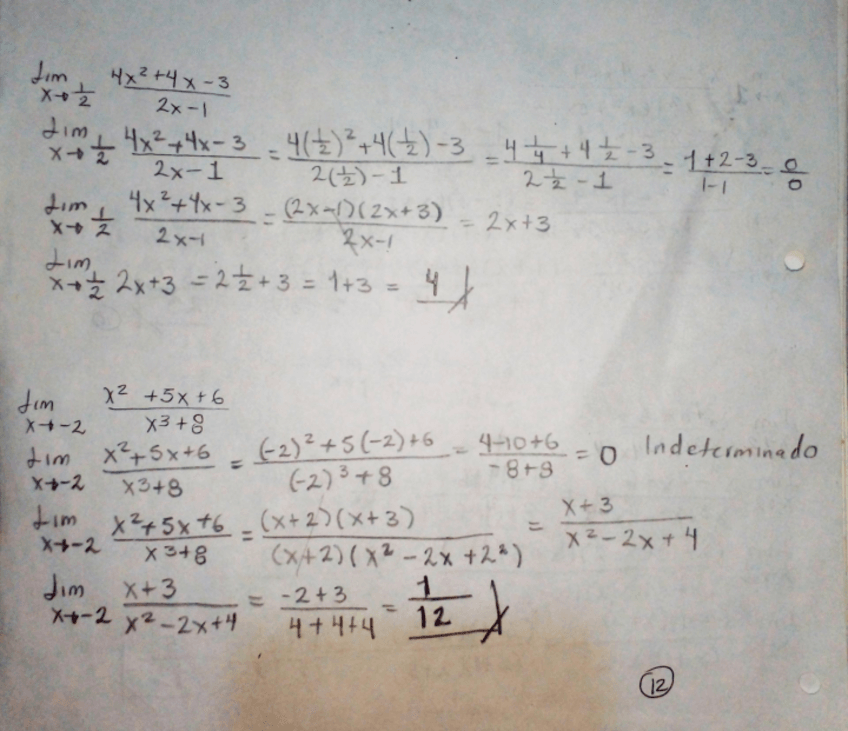 Lim x→1/2 (4x²+4x-3)/(2x-1)
Lim x→1/2 (4x²+4x-3)/(2x-1) = (4(1/2)²+4(1/2)-3)/(2(1/2)-1) = (4 1/4 + 4 1/2 - 3)/(2 1/2 - 1) = (1+2-3)/(1-1) = 0/0
Lim x→1/2 (4x²+4x-3)/(2x-1) = ((2x-1)(2x+3))/(2x-1) = 2x+3
Lim x→1/2 2x+3 = 2 1/2 + 3 = 1+3 = 4
Lim x→-2 (x²+5x+6)/(x³+8)
Lim x→-2 (x²+5x+6)/(x³+8) = ((-2)²+5(-2)+6)/((-2)³+8) = (4-10+6)/(-8+8) = 0 Indeterminado
Lim x→-2 (x²+5x+6)/(x³+8) = ((x+2)(x+3))/((x+2)(x²-2x+2²)) = (x+3)/(x²-2x+4)
Lim x→-2 (x+3)/(x²-2x+4) = (-2+3)/(4+4+4) = 1/12
12